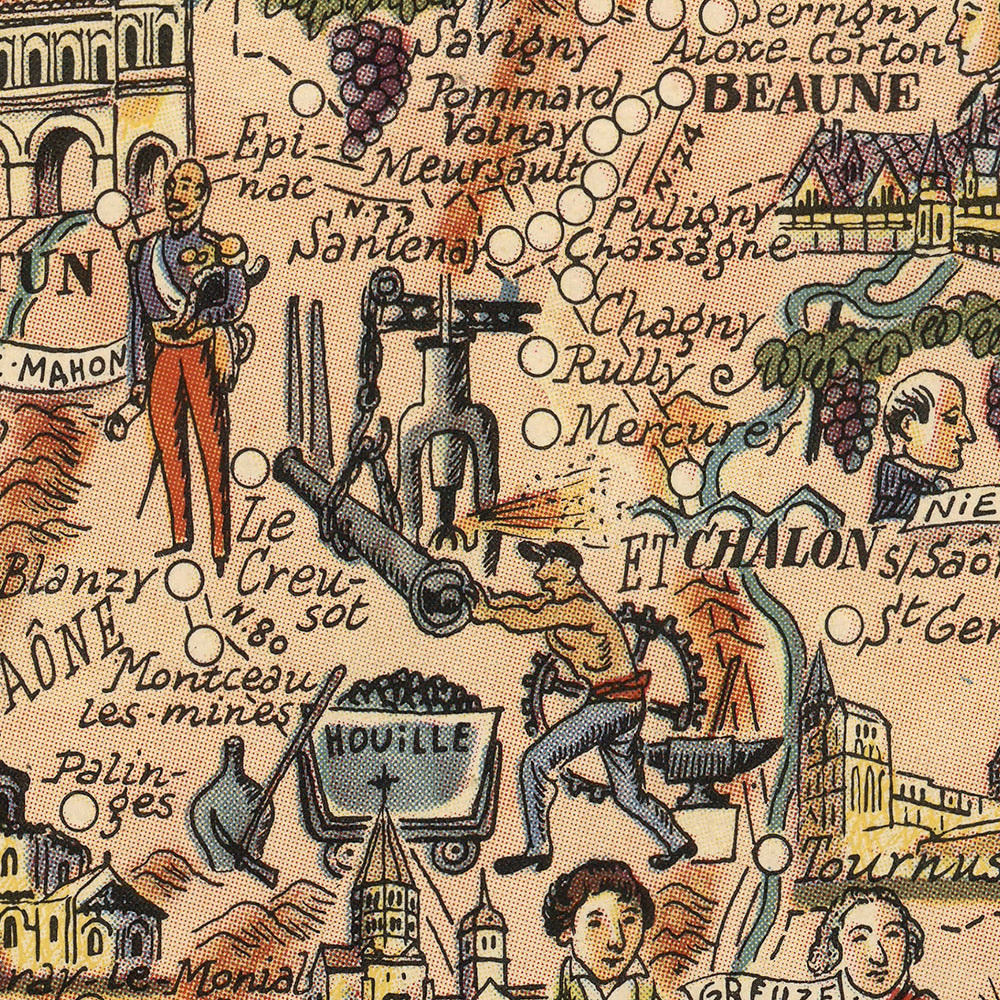 Serrigny
Savigny
Aloxe-Corton
BEAUNE
Pommard
Volnay
N.74
Epi-
nac
Meursault
N.73
Puligny
Santenay
Chassagne
TUN
Chagny
Rully
MAHON
Mercurey
Le
Creu-
sot
NIE
ET CHALON s/Saô
Blanzy
St. Ger
N.80
AÔNE
Montceau
les-mines
HOUiLLE
Palin-
ges
Tournus
ray-le-Monial
GREUZE